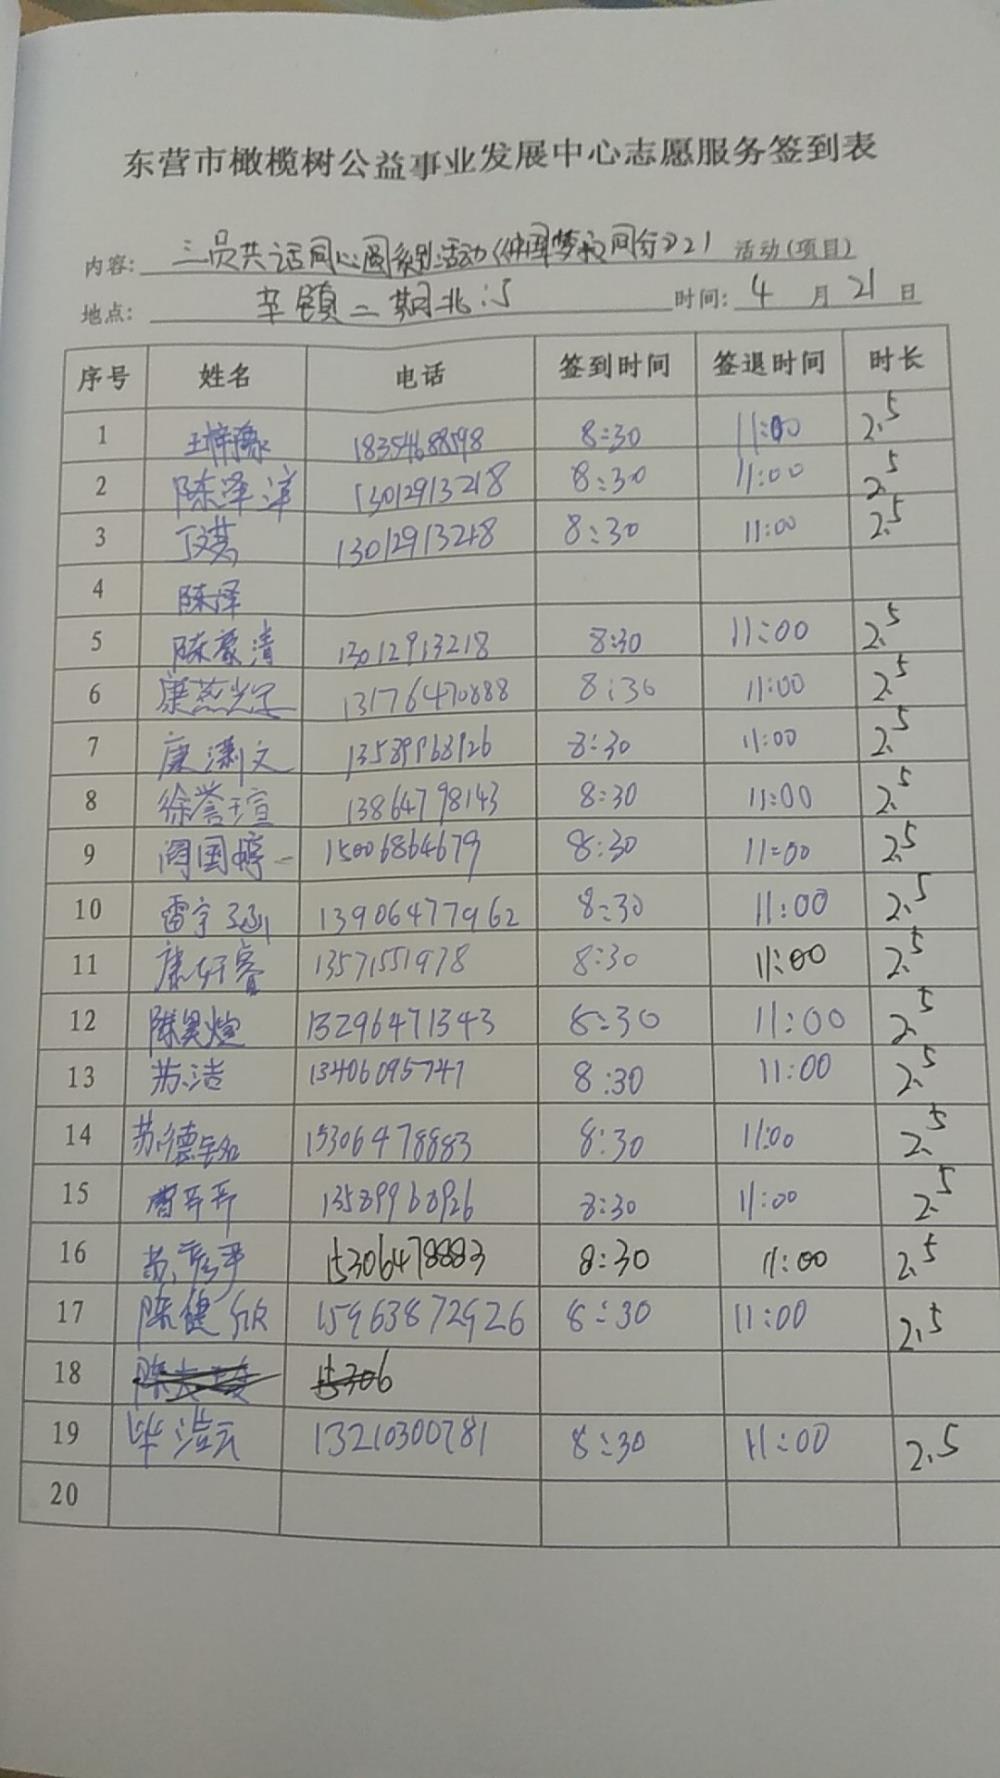 东营市橄榄树公益事业发展中心志愿服务签到表
内容: 三员共话同心圆系列活动《中国梦 同分》21 活动(项目)
地点: 辛镇二期北 时间: 4 月 21 日
序号 姓名 电话 签到时间 签退时间 时长
1 王梓豫 18354688598 8:30 11:00 2.5
2 陈泽洋 13012913218 8:30 11:00 2.5
3 丁文其 13012913218 8:30 11:00 2.5
4 陈泽
5 陈豪清 13012913218 8:30 11:00 2.5
6 康燕 13176470888 8:30 11:00 2.5
7 康潇文 13589968926 8:30 11:00 2.5
8 徐誉瑄 13864798143 8:30 11:00 2.5
9 阎国婷 15006864679 8:30 11:00 2.5
10 雷宇涵 13906477962 8:30 11:00 2.5
11 康轩睿 13571551978 8:30 11:00 2.5
12 陈昊煊 13296471343 8:30 11:00 2.5
13 苏洁 13406095747 8:30 11:00 2.5
14 苏德 15306478883 8:30 11:00 2.5
15 曹开开 13589968926 8:30 11:00 2.5
16 苏彦平 15306478883 8:30 11:00 2.5
17 陈健欣 15963872926 8:30 11:00 2.5
18 15306
19 毕浩云 13210300781 8:30 11:00 2.5
20